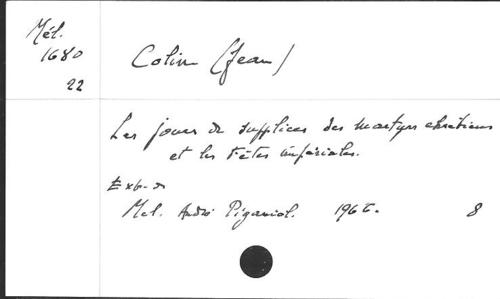 Mél.
1680
22
Colin (Jean)
Les jours de supplices des martyrs chrétiens
et les fêtes impériales.
Ext. de
Mel. André Piganiol. 1966. 8